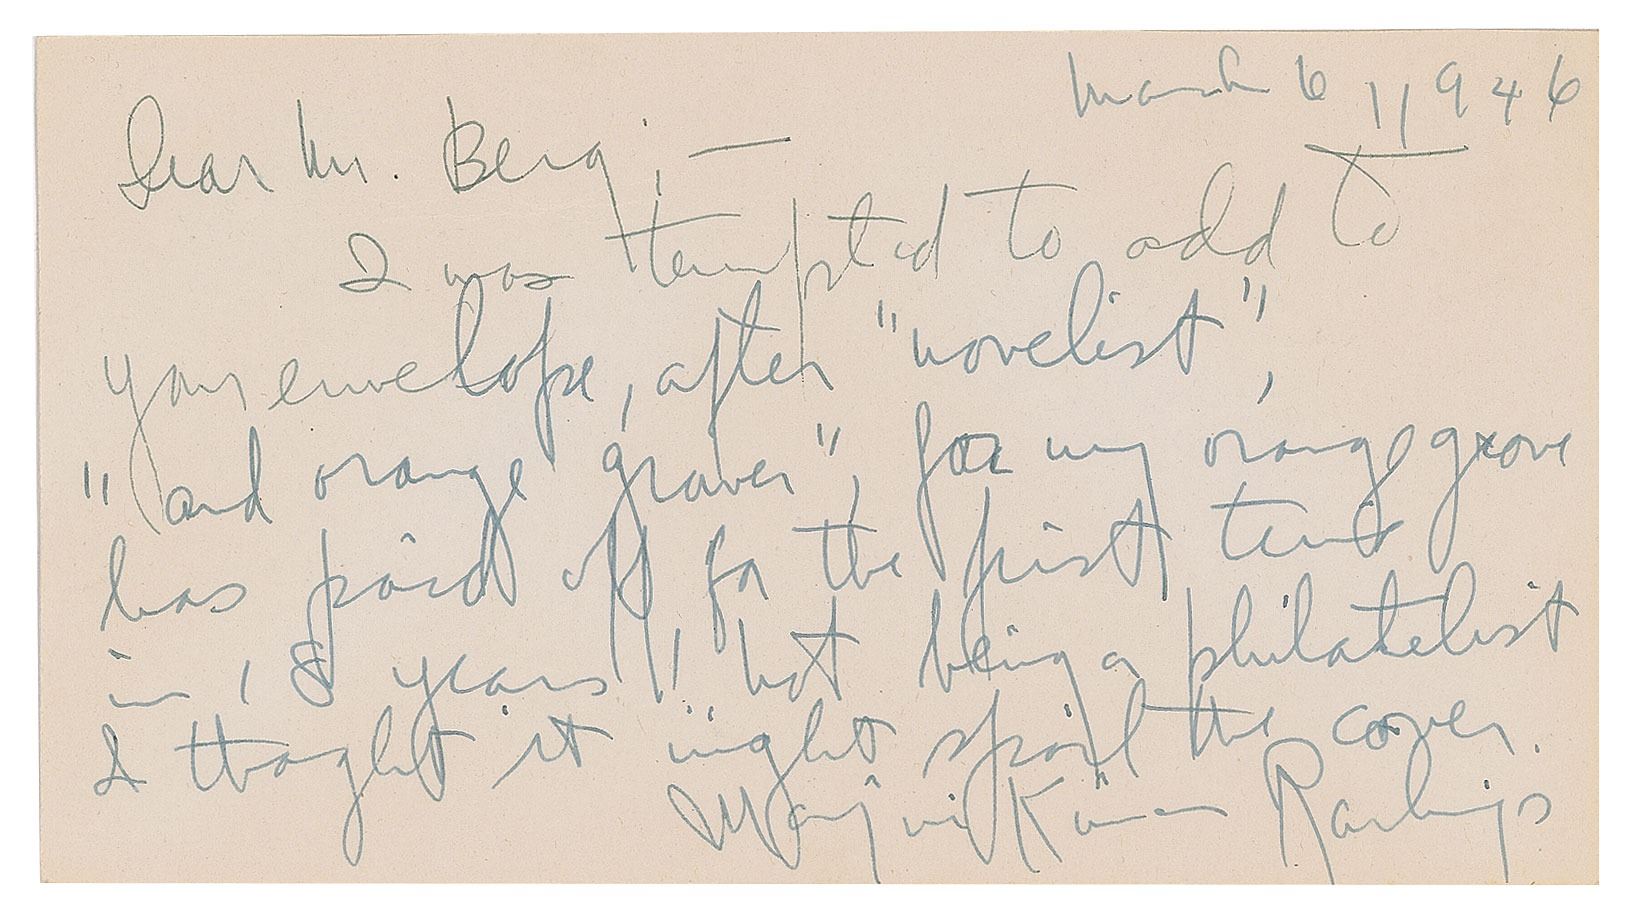 March 6, 1946
Dear Mr. Berg; —
I was tempted to add to
your envelope, after "novelist",
"and orange grower", for my orange grove
has paid off for the first time
in 18 years, but being a philatelist
I thought it might spoil the cover.
Marjorie Kinnan Rawlings